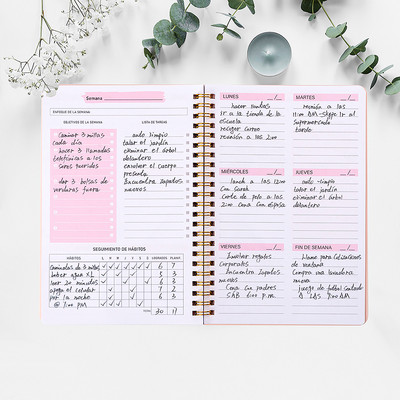 Semana
ENFOQUE DE LA SEMANA
OBJETIVOS DE LA SEMANA
LISTA DE TAREAS
Caminar 3 millas
cada día
hacer 3 llamadas
telefónicas a los
seres queridos
dar 3 bolsas de
verduras fuera
auto limpio
talar el jardín
eliminar el árbol
delantero
envolver el cuerpo
presente
Encuentra zapatos
nuevos
SEGUIMIENTO DE HÁBITOS
HÁBITOS
L M M J V S D
LOGRADO PLAN
Caminadas de 3 millas 6 7
beber agua 5 3
leer 20 minutos 6 3
apaga el celular 7 2
por la noche 6 3
@ 9:00 PM
TOTAL 30 17
LUNES
hacer rondas
Ir a la tienda de la
escuela
recoger correo
reunión a las 2:00
MARTES
reunión a las
11:00 AM
supermercado
tarde
MIÉRCOLES
lunch a las 12:00
con Sarah
Corte de pelo a las
2:00 Cena con esposa
JUEVES
auto limpio
talar el jardín
eliminar el árbol
delantero
VIERNES
Envolver regalos
corporales
Encuentra zapatos
nuevos
Cena con padres
SAB 6:00 P.M.
FIN DE SEMANA
Llame para Cotizaciones
de ventana
Compra una lavadora
nueva
juego de fútbol
A LAS 9:00 AM